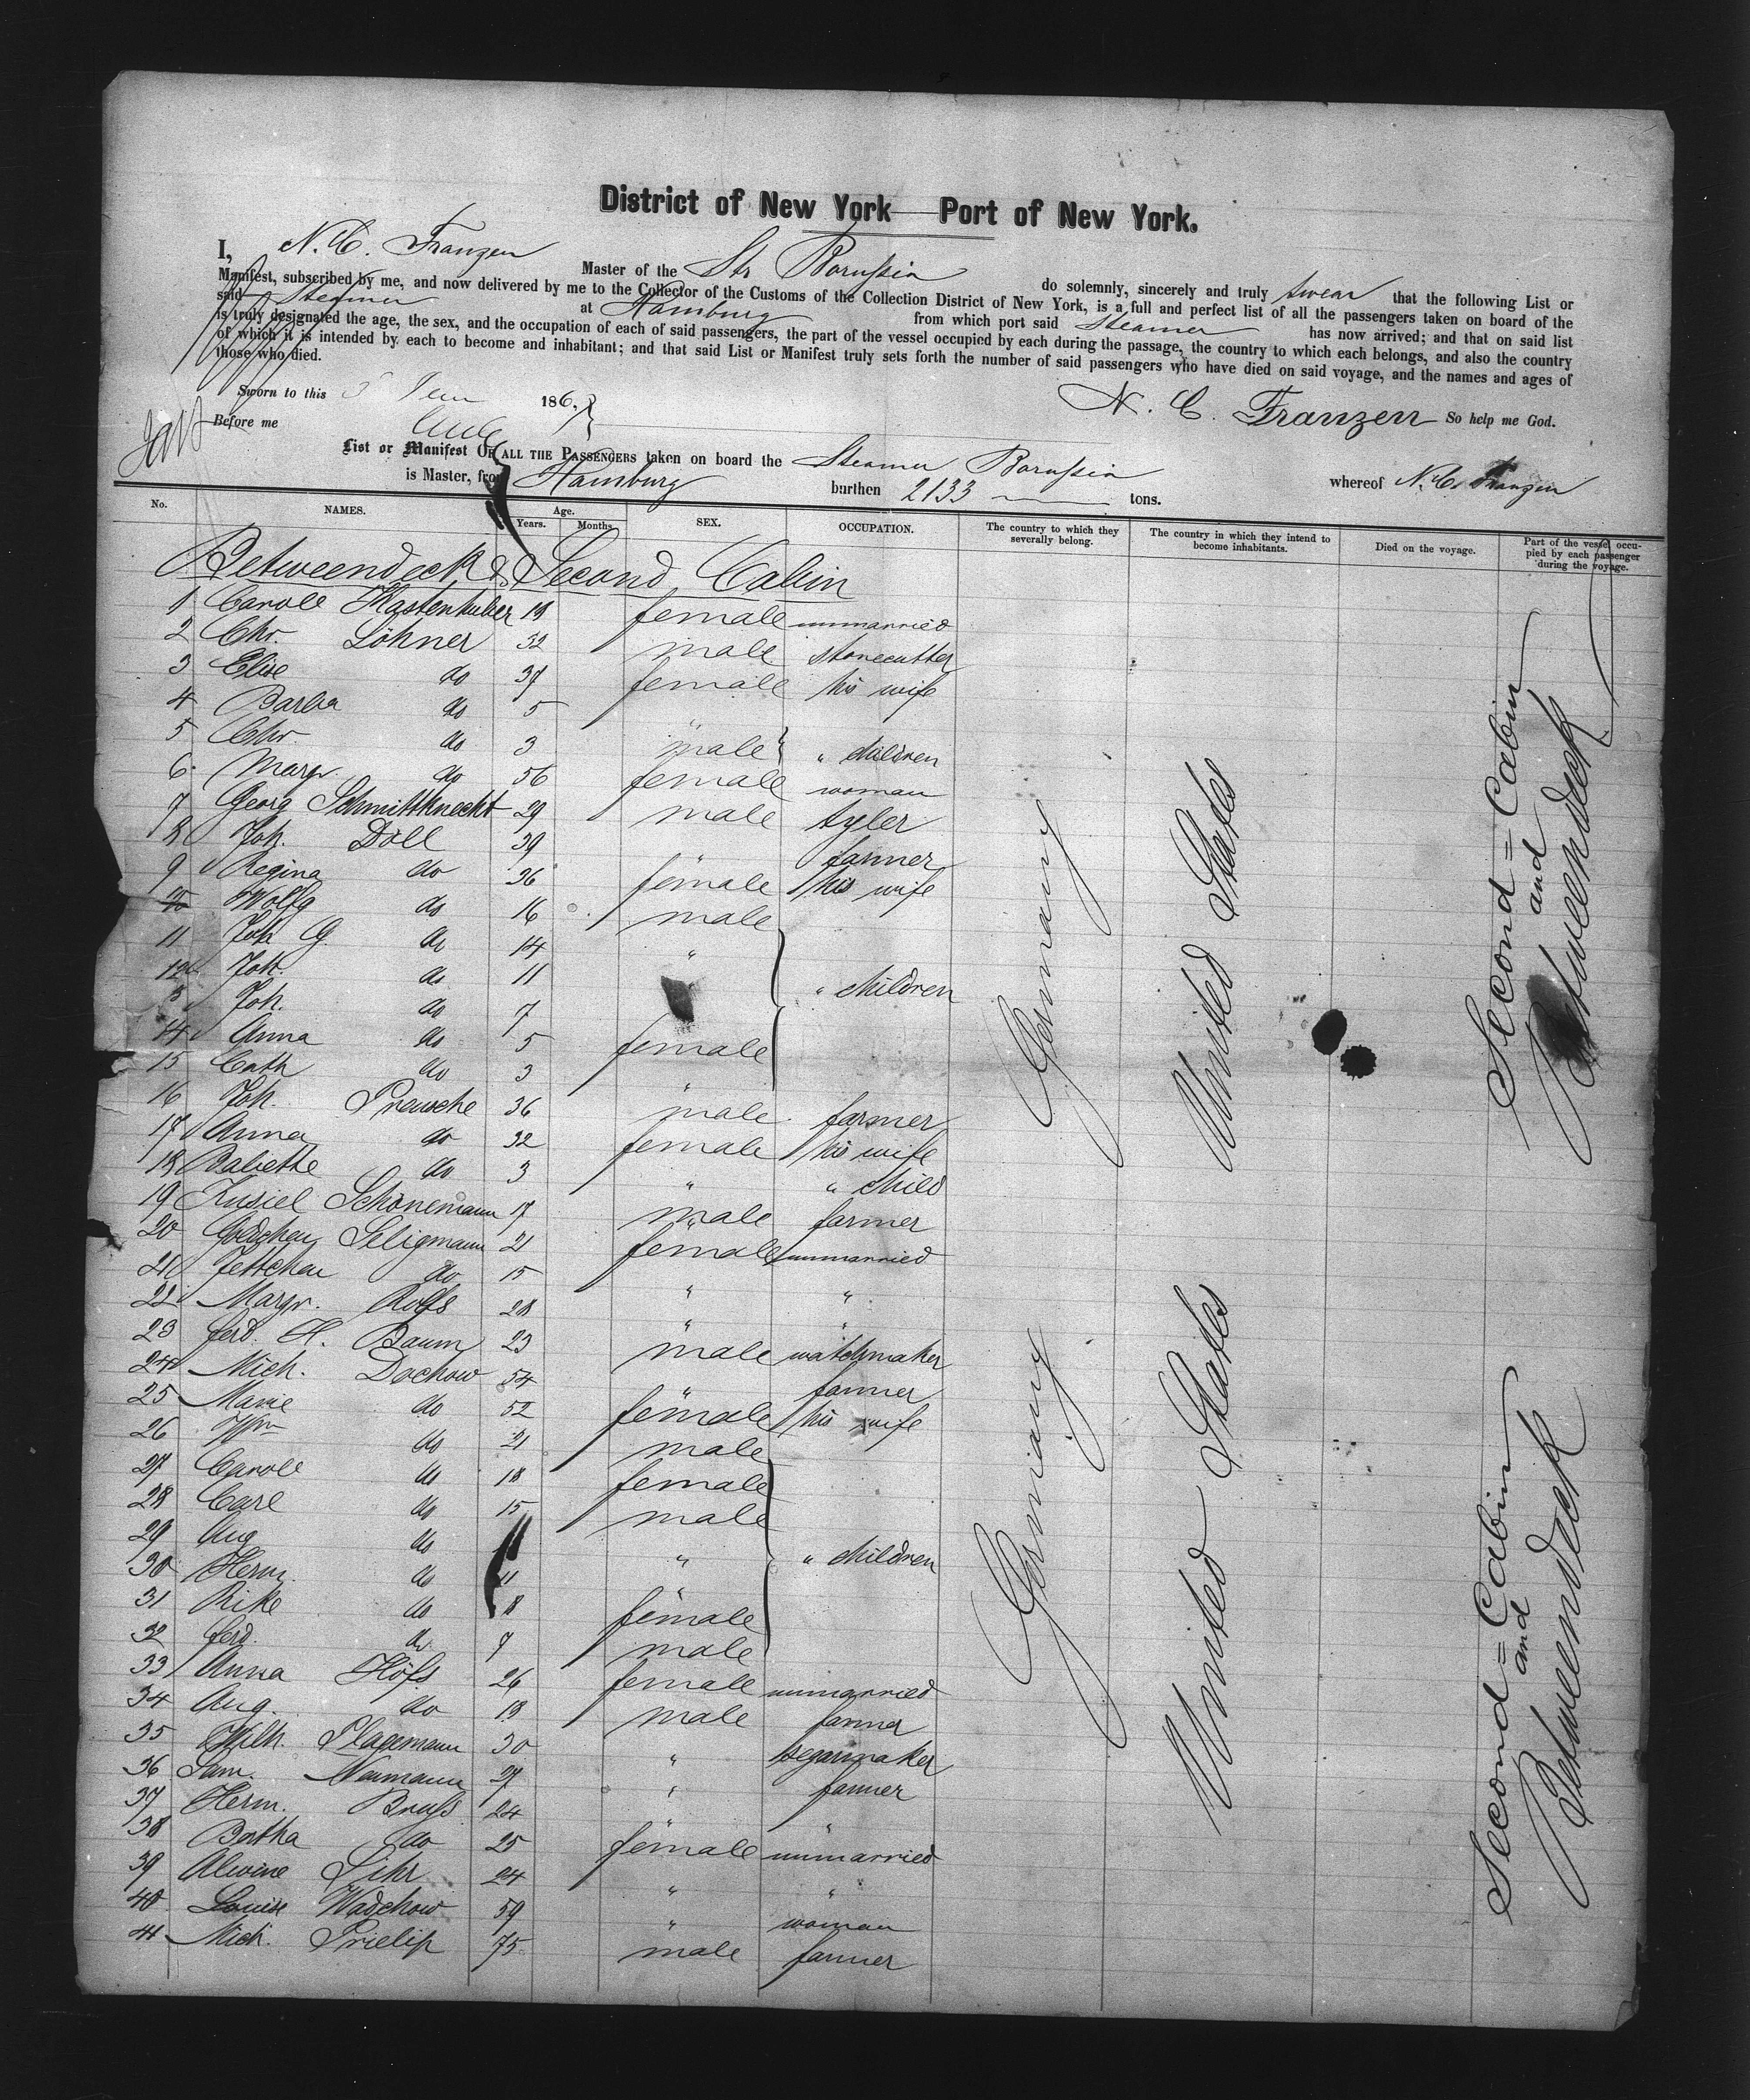 District of New York—Port of New York.
I, N. C. Franzen Master of the Str Borussia do solemnly, sincerely and truly swear that the following List or
Manifest, subscribed by me, and now delivered by me to the Collector of the Customs of the Collection District of New York, is a full and perfect list of all the passengers taken on board of the
said Steamer at Hamburg from which port said Steamer has now arrived; and that on said list
is truly designated the age, the sex, and the occupation of each of said passengers, the part of the vessel occupied by each during the passage, the country to which each belongs, and also the country
of which it is intended by each to become and inhabitant; and that said List or Manifest truly sets forth the number of said passengers who have died on said voyage, and the names and ages of
those who died.
Sworn to this 186
N. C. Franzen So help me God.
Before me
List or Manifest OF ALL THE PASSENGERS taken on board the Steamer Borussia whereof N. C. Franzen
is Master, from Hamburg burthen 2133 tons.
No. NAMES. Age. Years. Months SEX. OCCUPATION. The country to which they severally belong. The country in which they intend to become inhabitants. Died on the voyage. Part of the vessel occupied by each passenger during the voyage.
Betweendeck & Second Cabin
1 Caroll Kastenhuber 18 female unmarried
2 Chr. Löhner 32 male stonecutter
3 Elise do 37 female his wife
4 Barba do 5 "
5 Chr. do 3 male " children
6 Margr. do 56 female woman
7 Georg Schmittknecht 29 male tyler
8 Joh. Döll 39 " farmer
9 Regina do 36 female his wife
10 Wolfg do 16 male
11 Joh G. do 14 "
12 Joh. do 11 " children
3 Joh. do 7
14 Anna do 5 female
15 Cath do 3 "
16 Joh. Preusche 36 male farmer
17 Anna do 32 female his wife
18 Babette do 3 " " child
19 Kusiel Schönemann 17 male farmer
20 Goldchen Seligmann 21 female unmarried
21 Jettchen do 15 " "
22 Margr. Rolfs 28 " "
23 Ferd. H. Baum 23 male watchmaker
24 Mich. Dochow 54 " farmer
25 Marie do 52 female his wife
26 Wm do 21 male
27 Caroll do 18 female
28 Carl do 15 male
29 Aug do " " children
30 Herm. do 11 "
31 Rike do 8 female
32 Ferd. do 7 male
33 Anna Höfs 26 female unmarried
34 Aug. do 18 male farmer
35 Wilh. Plagemann 30 " segarmaker
36 Sam. Neumann 27 " farmer
37 Herm. Bruss 24 " "
38 Bertha do 25 female unmarried
39 Alwine Lihr 24 " "
40 Louise Wadchow 59 " woman
41 Mich. Prielip 75 male farmer
Germany
United States
Second=Cabin
and
Betweendeck
Germany
United States
Second=Cabin
and
Betweendeck